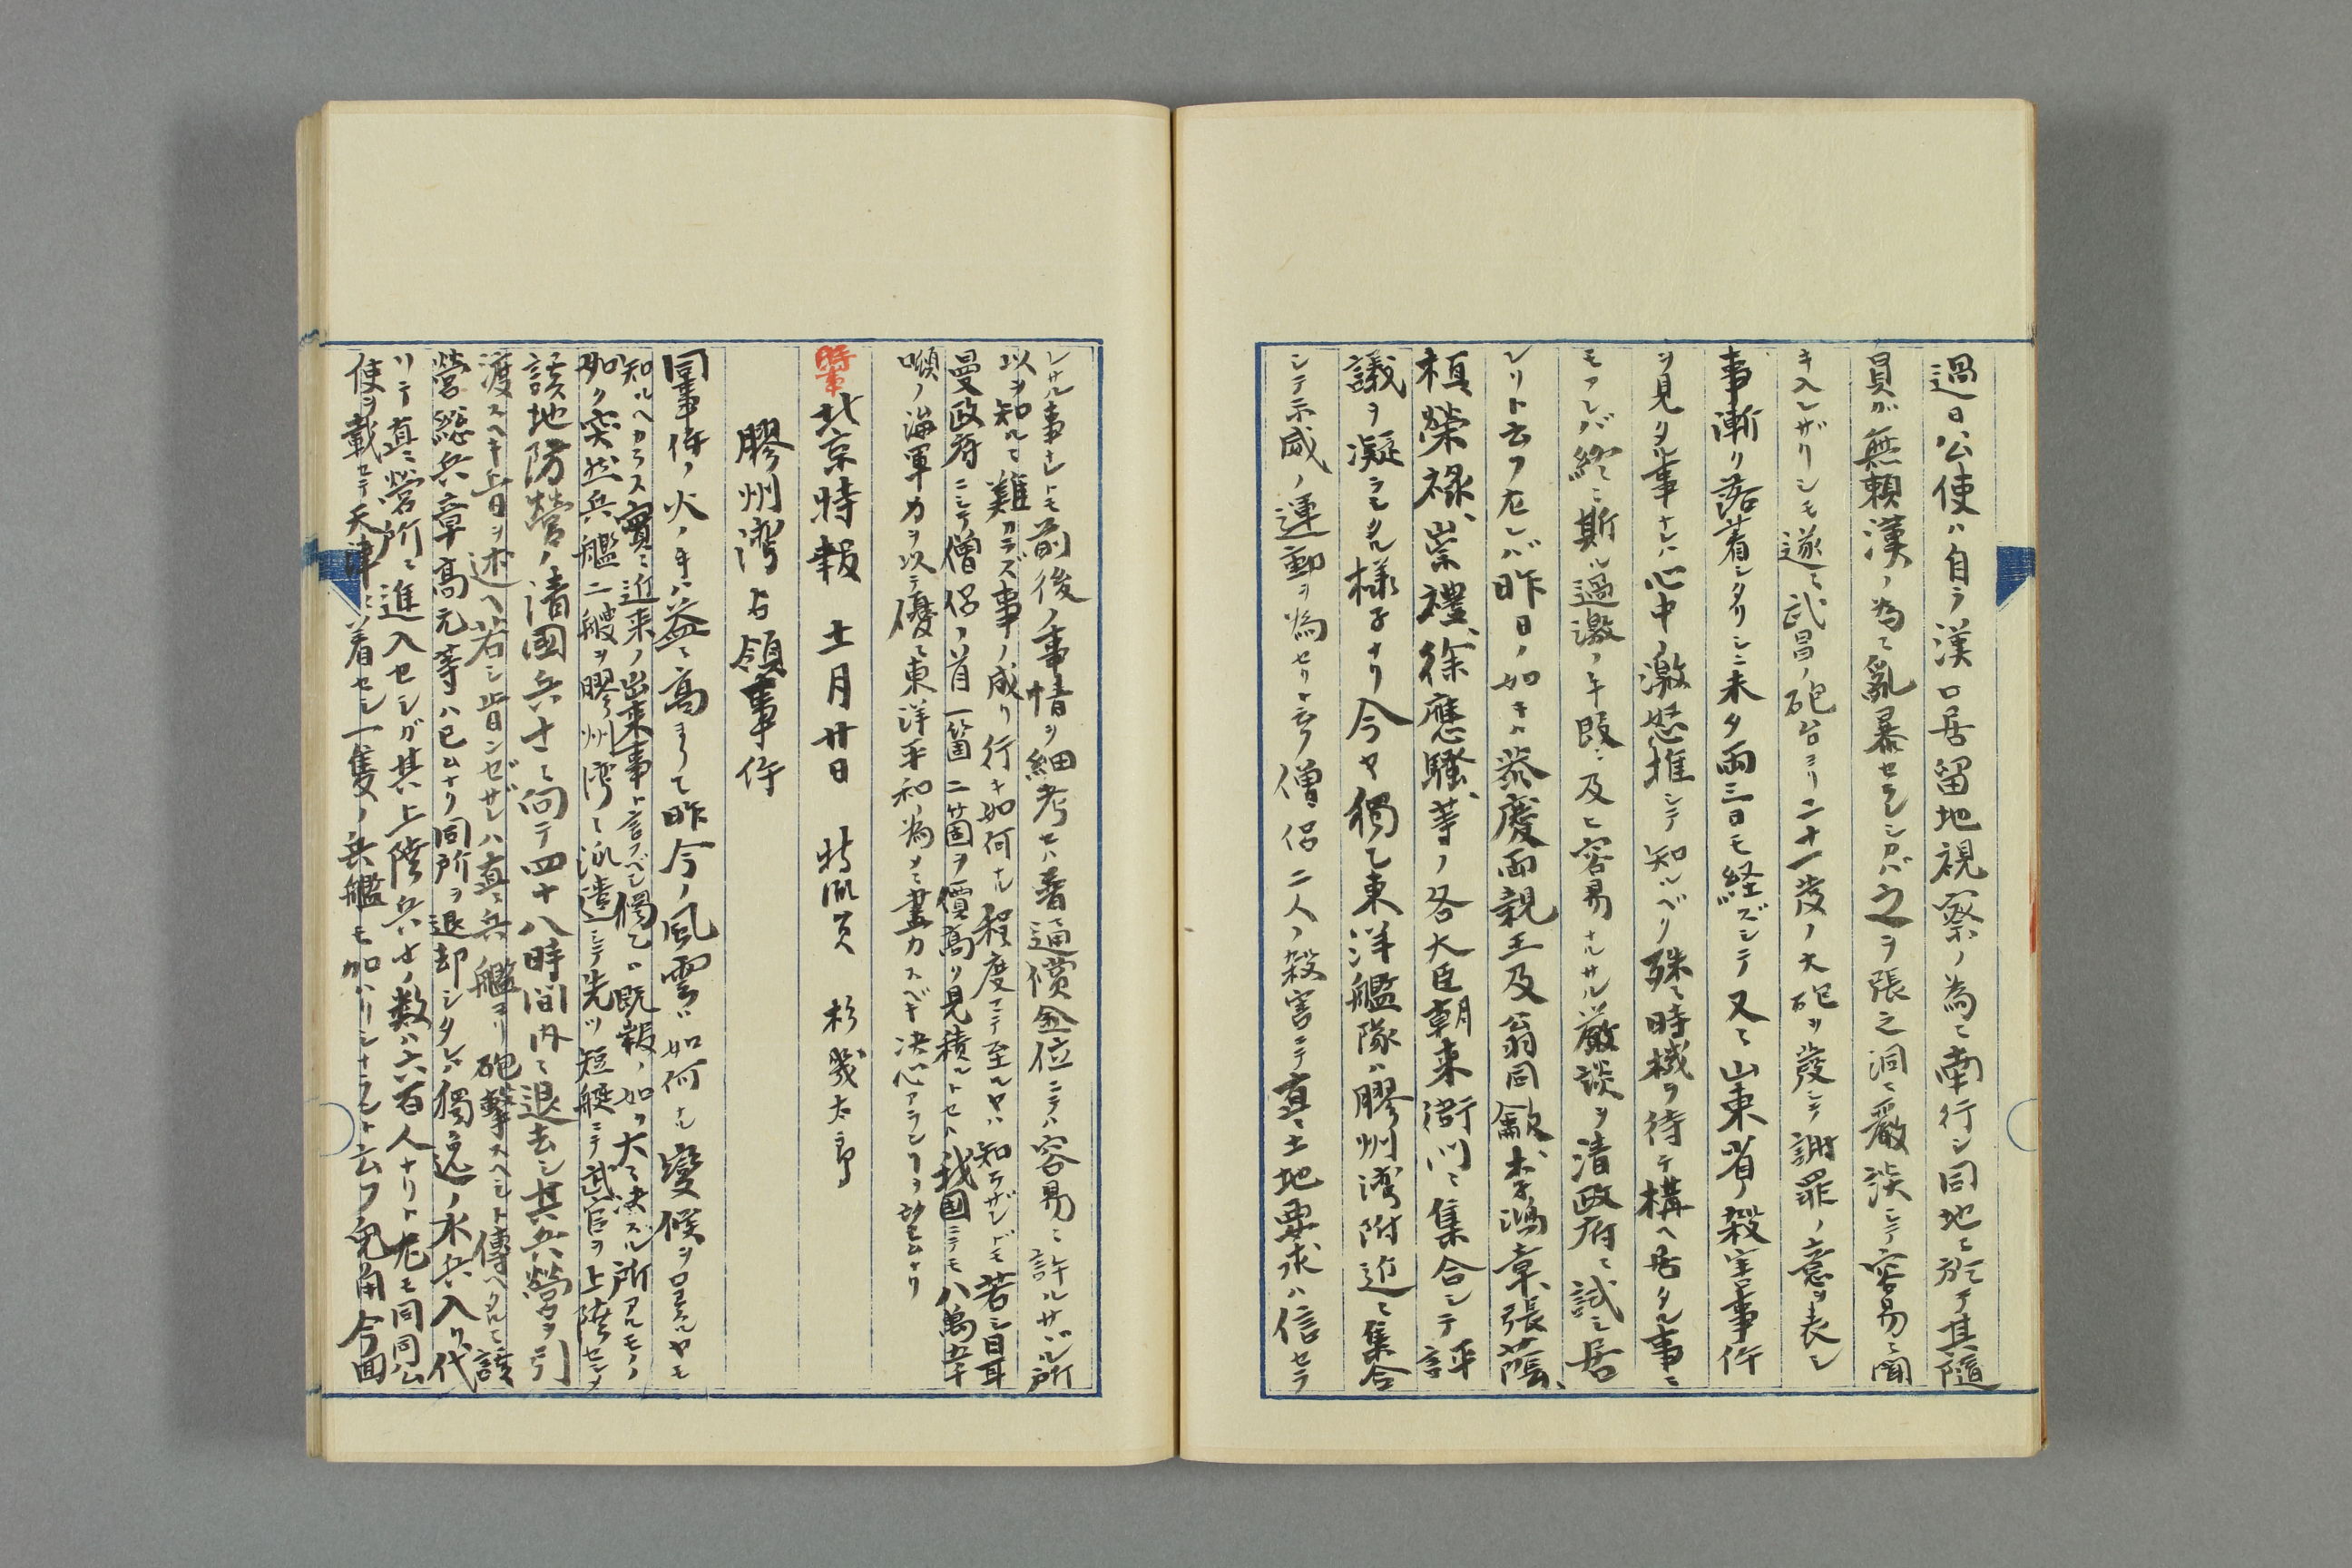 過日公使ハ自ラ漢口居留地視察ノ為ニ南行シ同地ニ於テ其隨
員ガ無頼漢ノ為ニ亂暴セラレシカバ之ヲ張之洞ニ嚴談シテ容易ニ聞
キ入レザリシモ遂ニ武昌ノ砲台ヨリ二十一發ノ大砲ヲ發シテ謝罪ノ意ヲ表シ
事漸ク落着シタリシニ未タ両三日モ経ズシテ又々山東省ノ殺害事件
ヲ見タル事ナレハ心中ノ激怒推シテ知ルベク殊ニ時機ヲ待テ構ヘ居タル事ニ
モアレバ終ニ斯ル過激ノ手段ニ及ヒ容易ナルサル嚴談ヲ清政府ニ試ミ居
レリト云フ左レバ昨日ノ如キハ恭慶両親王及翁同龢、李鴻章、張蔭
桓、榮禄、崇禮、徐應騤、等ノ各大臣朝来衙門ニ集合シテ評
議ヲ凝ラセル様子ナリ今ヤ獨乙東洋艦隊ハ膠州湾附近ニ集合
シテ示威ノ運動ヲ為セリト云フ僧侶二人ノ殺害ニテ直ニ土地要求ハ信セラ
レサル事ナレトモ前後ノ事情ヲ細考セハ普通償金位ニテハ容易ニ許ルサヾル所
以ヲ知ルニ難カラズ事ノ成リ行キ如何ナル程度ニテ至ルヤハ知ラザレドモ若シ日耳
曼政府ニシテ僧侶ノ首一箇二箇ヲ價高ク見積ルトセハ我国ニテモ八萬五千
噸ノ海軍力ヲ以テ優ニ東洋平和ノ為メニ盡力スベキ決心アランヿヲ望ムナリ
時事 北京特報 十一月廿日 特派員 杉幾太郎
膠州湾占領事件
同事件ノ火ノ手ハ益々高マリて昨今ノ風雲ハ如何ナル變候ヲ呈スルヤモ
知ルヘカラス實ニ近来ノ出来事ト言フベシ獨乙ハ既報ノ如ク大ニ決スル所アルモノヽ
如ク突然兵艦二艘ヲ膠州湾ニ派遣シテ先ツ短艇ニテ武官ヲ上陸セシメ
該地防營ノ清国兵士ニ向テ四十八時間内ニ退去シ其兵營ヲ引
渡スヘキ旨ヲ述ヘ若シ肯ンゼザレハ直ニ兵艦ヨリ砲撃スヘシト傳ヘタルニ該
營総兵章高元等ハ已ムナク同所ヲ退却シタレハ獨逸ノ水兵入リ代
リテ直ニ營所ニ進入セシガ其上陸兵士ノ数ハ六百人ナリト尤モ同国公
使ヲ載セテ天津ニ着セシ一隻ノ兵艦モ加ハリシナランと云フ兎角今回